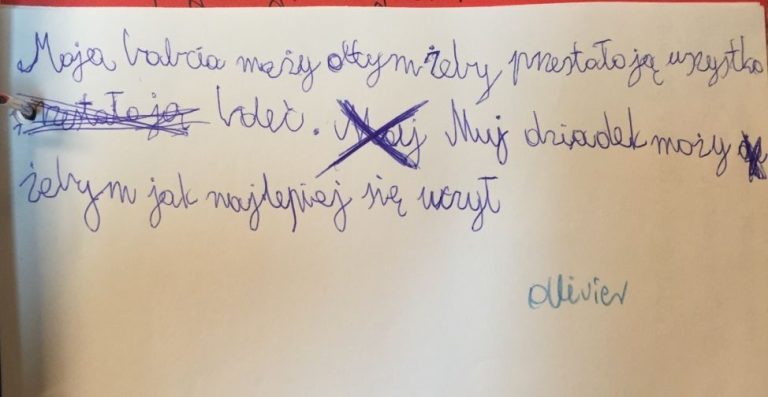 Moja babcia maży otym żeby przestało ją wszystko
przstało ją boleć. Moj Muj dziadek maży
żebym jak najlepiej się uczył
Olivier